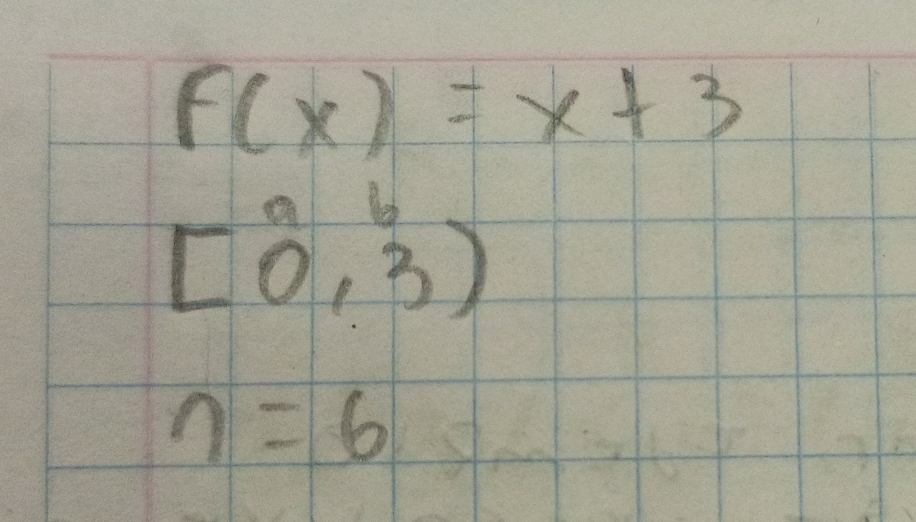 f(x) = x + 3
a b
[0, 3)
n = 6